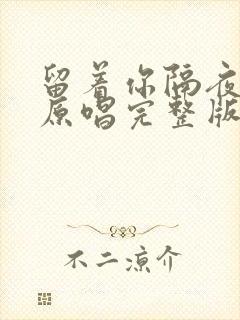 留着你隔夜
原唱完整版
不二凉介